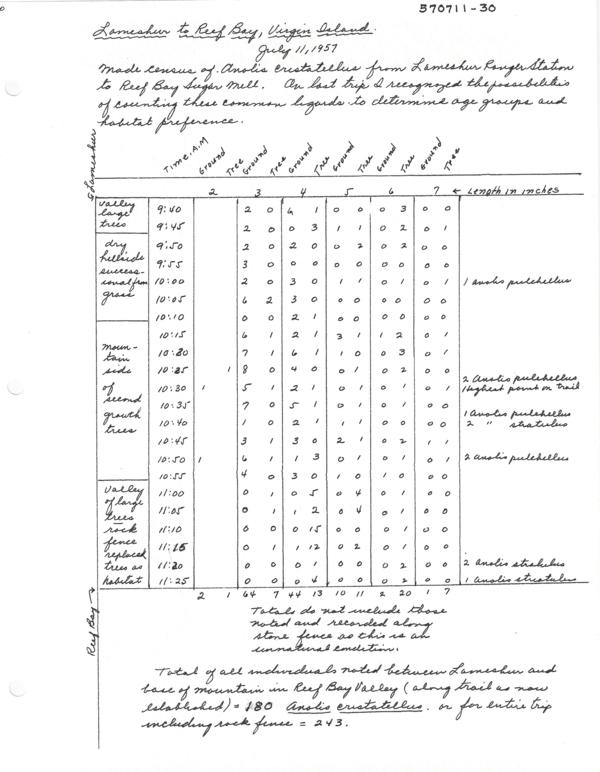 570711-30
Lameshur to Reef Bay, Virgin Island.
July 11, 1957
Made census of Anolis cristatellus from Lameshur Ranger Station
to Reef Bay Sugar Mill. On last trip I recognized the possibilities
of counting these common lizards to determine age groups and
habitat preference.
Lameshur
Time A.M Ground Tree Ground Tree Ground Tree Ground Tree Ground Tree Ground Tree
2 3 4 5 6 7 ← Length in inches
valley large trees
9:40 2 0 6 1 0 0 0 3 0 0
9:45 2 0 0 3 1 1 0 2 0 1
dry hillside successional from grass
9:50 2 0 2 0 0 2 0 2 0 0
9:55 3 0 0 0 0 0 0 0 0 0
10:00 2 0 3 0 1 1 0 1 0 1 1 anolis pulchellus
10:05 6 2 3 0 0 0 0 0 0 0
10:10 0 0 2 1 0 0 0 0 0 0
mountain side of second growth trees
10:15 6 1 2 1 3 1 1 2 0 1
10:20 7 1 6 1 1 0 0 3 0 1
10:25 1 8 0 4 0 0 1 0 2 0 0
10:30 1 5 1 2 1 0 1 0 1 0 1 2 Anolis pulchellus
Highest point on trail
10:35 7 0 5 1 0 1 0 1 0 0
10:40 1 0 2 1 1 1 0 0 0 0 1 Anolis pulchellus
2 " stratulus
10:45 3 1 3 0 2 1 0 2 1 1
10:50 1 6 1 1 3 0 1 0 1 0 1 2 Anolis pulchellus
10:55 4 0 3 0 1 0 1 0 0 0
Valley of large trees rock fence replaced trees as habitat
11:00 0 1 0 5 0 4 0 1 0 0
11:05 0 1 1 2 0 4 0 1 0 0
11:10 0 0 0 15 0 0 0 1 0 0
11:15 0 1 1 12 0 2 0 1 0 0
11:20 0 0 0 1 0 0 0 2 0 0 2 Anolis stratulus
11:25 0 0 0 4 0 0 0 2 0 0 1 Anolis stratulus
2 1 64 7 44 13 10 11 2 20 1 7
Reef Bay →
Totals do not include those
noted and recorded along
stone fence as this is an
unnatural condition.
Total of all individuals noted between Lameshur and
base of mountain in Reef Bay Valley (along trail as now
established) = 180 Anolis cristatellus. or for entire trip
including rock fence = 243.